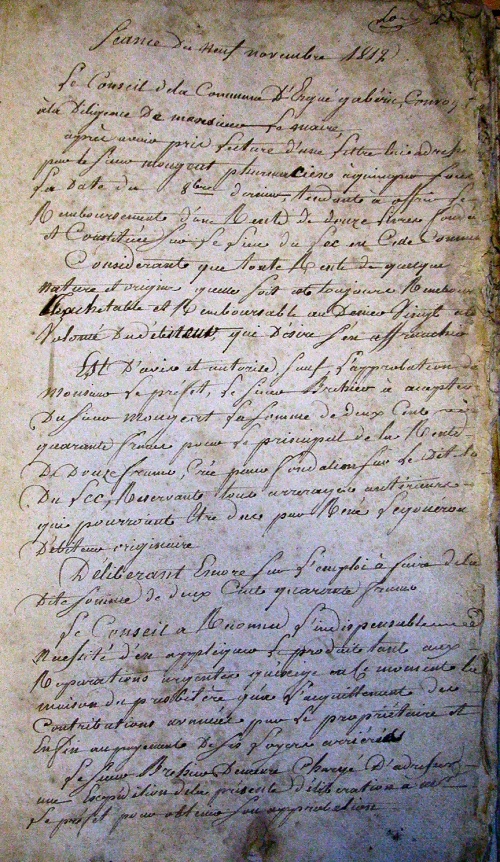 Séance du neuf novembre 1812
Le Conseil de la Commune D'Ergué gabéric, Convoqué
à la Diligence De monsieur Le maire,
après avoir pris lecture d'une lettre lui adressée
par le Sieur Mougeat pharmacien à quimper sous
La Date du 8bre dernier, tendante à offrir le
Remboursement d'une Rente de douze livres fondée
et Constituée sur le lieu du fec en Cede Commune
Considérant que toute Rente de quelque
nature et origine quelle soit est toujours Rembour
Rachetable et Remboursable au Denier Vingt et
Volonté Du débiteur, qui Désire s'en affranchir
Est D'avis et autorise, sauf l'approbation de
Monsieur Le préfet, Le Sieur Brehier à accepter
Du Sieur Mougeat La Somme de deux Cent
quarante francs pour le principal de la Rente
De Douze francs, Crée pour fondation sur le Dit lieu
Du fec, Réservant tous arrerages antérieurs
que pourront Etre dus par René Le gouerou
Débiteur originaire
Déliberant Encore sur l'emploi à faire de la
Dite somme de deux Cents quarante francs
Le Conseil a Reconnu l'indispensable
Nécessité d'en appliquer le produit tant aux
Réparations urgentes qu'exige en ce moment la
maison du presbitère qu'à l'acquittement des
Contributions avancées par le propriétaire et
Enfin au payement De ses loyers arriérés
Le Sieur Brehier Demeure Chargé D'adresser
une Expédition de la présente délibération à mr
Le préfet pour obtenir son approbation